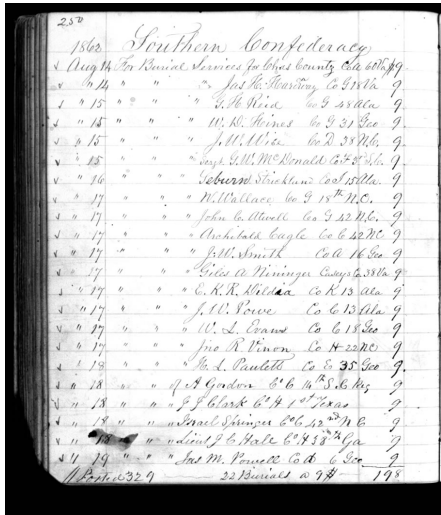 250
1862 Southern Confederacy
✓ Aug 14 For Burial Services for Chas County Co A 60 Va 9
✓ " 14 " " " Jas H. Co G 18 Va 9
✓ " 15 " " " G. H. Reid Co G 48 Ala 9
✓ " 15 " " " W. D. Hines Co G 31 Geo 9
✓ " 15 " " " J. W. Wise Co D 38 N.C. 9
✓ " 15 " " " G. W. McDonald Co H 9
✓ " 16 " " " Seburn Strickland Co I 15 Ala. 9
✓ " 17 " " " W. Wallace Co G 18th N.C. 9
✓ " 17 " " " John C. Atwell Co G 42 N.C. 9
✓ " 17 " " " Archibald Cagle Co C 42 NC 9
✓ " 17 " " " J. W. Smith Co A 16 Geo 9
✓ " 17 " " " Giles A Nininger Caseys Co. 38 Va 9
✓ " 17 " " " E. K. R. Co K 13 Ala 9
✓ " 17 " " " J. W. Co C 13 Ala 9
✓ " 17 " " " W. L. Evans Co C 18 Geo 9
✓ " 17 " " " Jno R Vinon Co H 22 NC 9
✓ " 18 " " " H. L. Pauletts Co E 35 Geo 9
✓ " 18 " " " A Gordon Co C 14th S. C Reg 9
✓ " 18 " " " J J Clark Co H 1st Texas 9
✓ " 18 " " " Israel Springer Co C 42nd N C 9
✓ " 18 " " " Lieut J C Hale Co H 38th Ga 9
✓ " 19 " " " Jas M. Powell Co A 6 Geo 9
Posted 329 22 Burials @ 9$ 198